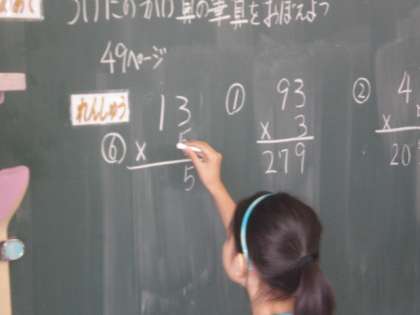 かけ算の筆算をおぼえよう
49ページ
れんしゅう
⑥ 13
× 5
5
① 93
× 3
279
② 4
×
20